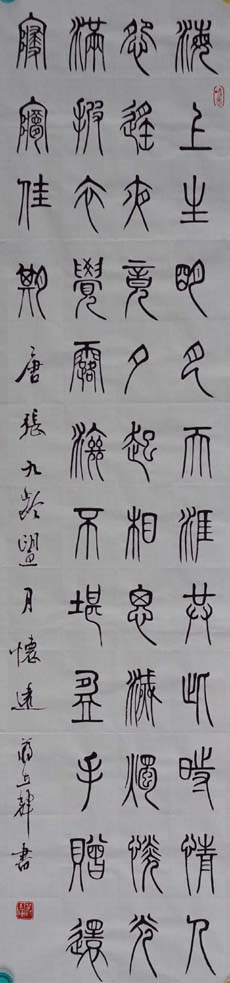 海上生明月天涯共此時情人
怨遙夜竟夕起相思滅燭憐光
滿披衣覺露滋不堪盈手贈還
寢夢佳期 唐張九齡望月懷遠 書